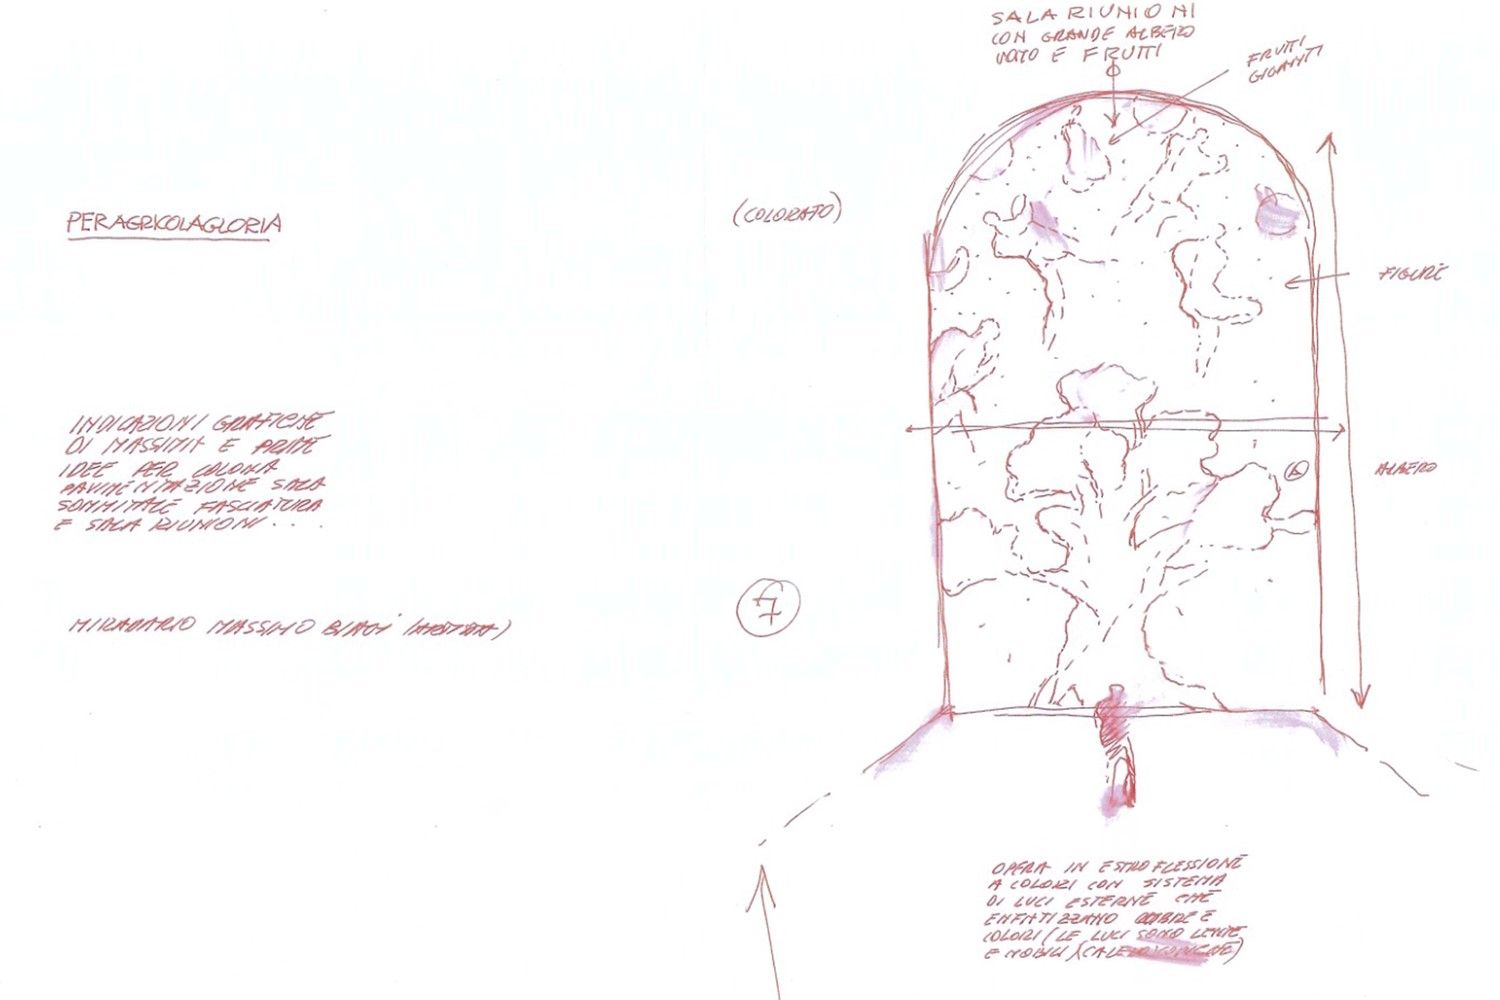 SALA RIUNIONI
CON GRANDE ALBERO
VUOTO E FRUTTI
FRUTTI
GIGANTI
PERAGRICOLAGLORIA
(COLORATO)
FIGURE
INDICAZIONI GRAFICHE
DI MASSIMA E PRIME
IDEE PER COLONNA
PAVIMENTAZIONE SALA
SOMMITALE FASCIATURA
E SALA RIUNIONI....
ALBERO
A
7
MIRADARIO MASSIMO BIAGI
OPERA IN ESTROFLESSIONE
A COLORI CON SISTEMA
DI LUCI ESTERNE CHE
ENFATIZZANO OMBRE E
COLORI (LE LUCI SONO LENTE
E MOBILI)